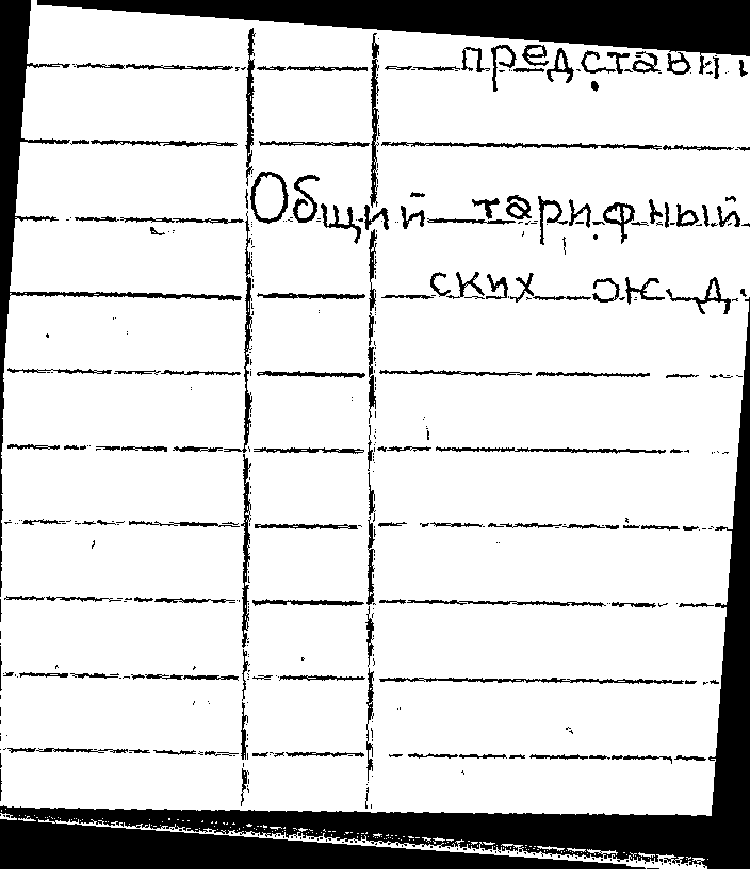 представи
Общий тарифный
ских ж.д.